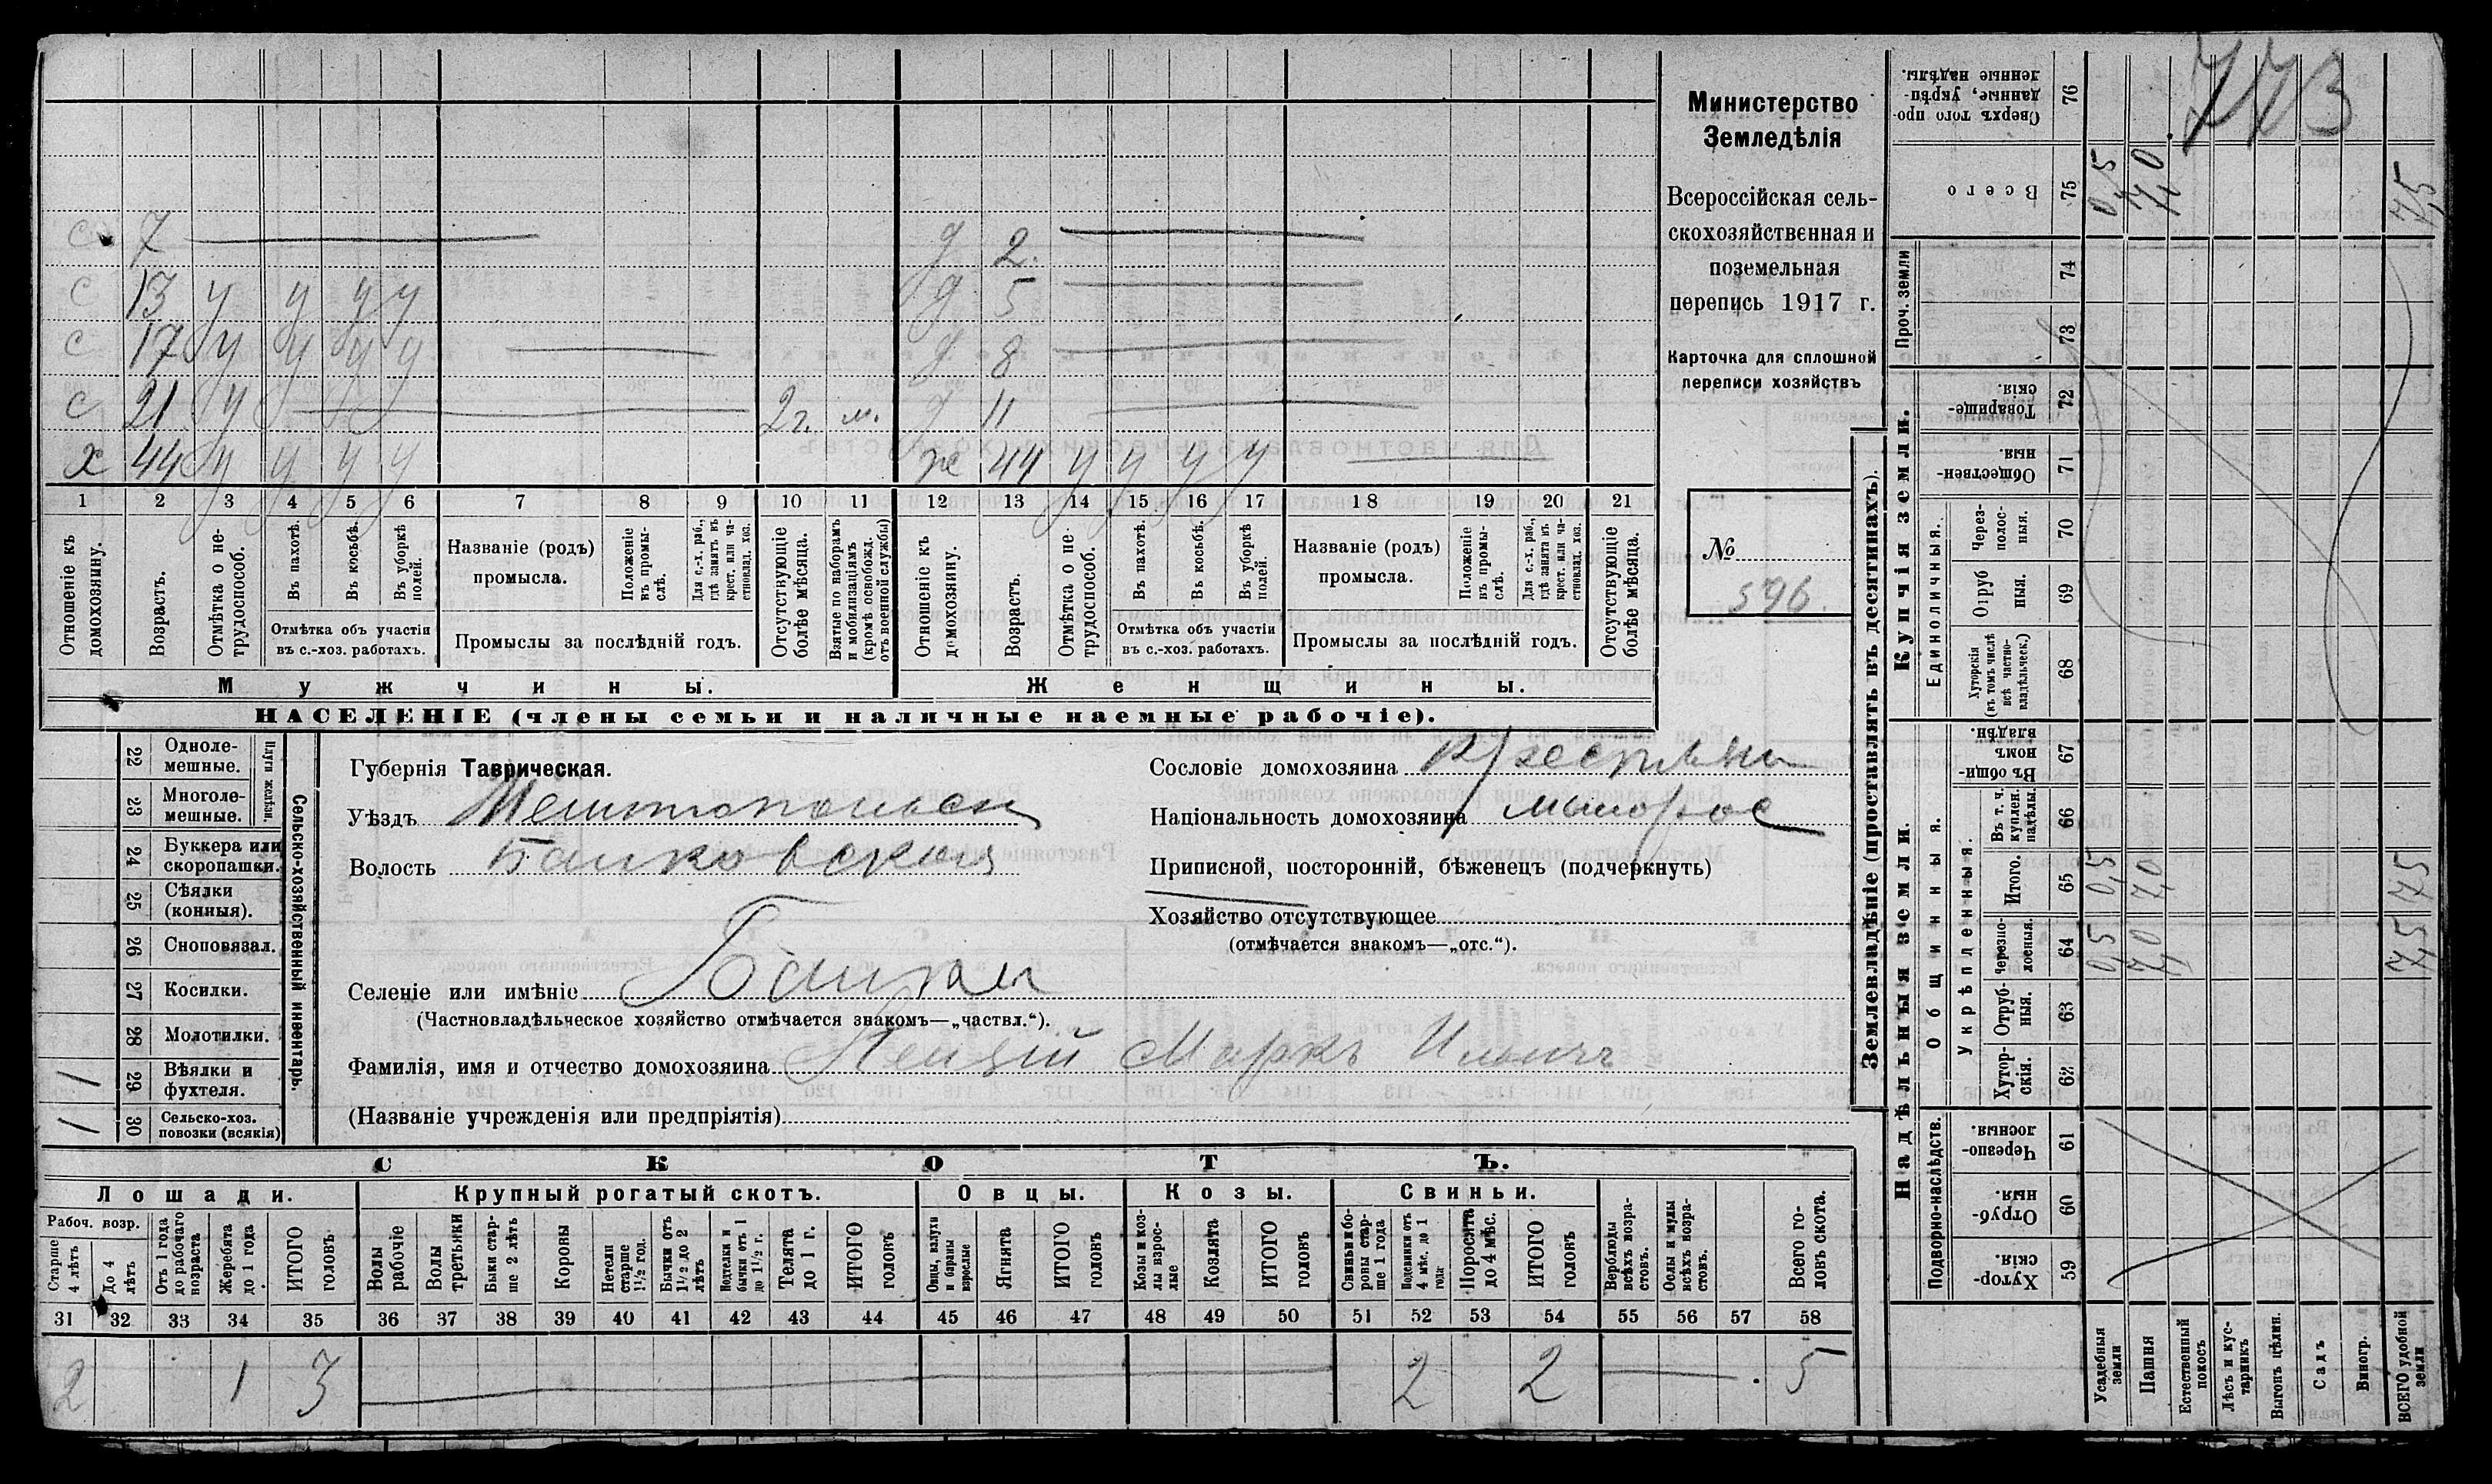 с 7 д 2.
с 13 у у у у д 5
с 17 у у у у д 8
с 21 у 2 г. м. д 11
х 44 у у у у ж 44 у у у у
1 2 3 4 5 6 7 8 9 10 11 12 13 14 15 16 17 18 19 20 21
Отношеніе къ домохозяину.
Возрастъ.
Отмѣтка о нетрудоспособ.
Въ пахотѣ.
Въ косьбѣ.
Въ уборкѣ полей.
Отмѣтка объ участіи
въ с.-хоз. работахъ.
Названіе (родъ)
промысла.
Положеніе въ промыслѣ.
Для с.-х. раб., гдѣ занятъ въ крест. или частновлад. хоз.
Промыслы за послѣдній годъ.
Отсутствующіе болѣе мѣсяца.
Взятые по наборамъ и мобилизаціямъ (кромѣ освобожд. отъ военной службы)
Отношеніе къ домохозяину.
Возрастъ.
Отмѣтка о не трудоспособ.
Въ пахотѣ.
Въ косьбѣ.
Въ уборкѣ полей.
Отмѣтка объ участіи
въ с.-хоз. работахъ.
Названіе (родъ)
промысла.
Положеніе въ промыслѣ.
Для с.-х. раб., гдѣ занята въ крест. или частновлад. хоз.
Промыслы за послѣдній годъ.
Отсутствующіе болѣе мѣсяца.
Мужчины. Женщины.
НАСЕЛЕНІЕ (члены семьи и наличные наемные рабочіе).
Министерство
Земледѣлія
Всероссійская сель-
скохозяйственная и
поземельная
перепись 1917 г.
Карточка для сплошной
переписи хозяйствъ
№
596.
Сельско-хозяйственный инвентарь.
Плуги желѣзн.
22 Одноле-
мешные.
23 Многоле-
мешные.
24 Буккера или
скоропашки.
25 Сѣялки
(конныя).
26 Сноповязал.
27 Косилки.
28 Молотилки.
1 29 Вѣялки и
фухтеля.
1 30 Сельско-хоз.
повозки (всякія)
Губернія Таврическая.
Уѣздъ Мелитопольск
Волость Балковская
Селеніе или имѣніе Балки
(Частновладѣльческое хозяйство отмѣчается знакомъ—„частвл.“).
Фамилія, имя и отчество домохозяина Маркъ Ильичъ
(Названіе учрежденія или предпріятія)
Сословіе домохозяина крестьянин
Національность домохозяина малорос
Приписной, посторонній, бѣженецъ (подчеркнуть)
Хозяйство отсутствующее
(отмѣчается знакомъ—„отс.“).
СКОТЪ.
Лошади. Крупный рогатый скотъ. Овцы. Козы. Свиньи.
Рабоч. возр.
Старше 4 лѣтъ
До 4 лѣтъ
Отъ 1 года до рабочаго возраста
Жеребята до 1 года
ИТОГО головъ.
Волы рабочіе
Волы третьяки
Быки старше 2 лѣтъ
Коровы
Нетели старше 1½ год.
Бычки отъ 1½ до 2 лѣтъ
Подтелки и бычки отъ 1 до 1½ г.
Телята до 1 г.
ИТОГО головъ
Овцы, валухи и бараны взрослые
Ягнята
ИТОГО головъ
Козы и козлы взрослые
Козлята
ИТОГО головъ
Свиньи и боровы старше 1 года
Подсвинки отъ 4 мѣс. до 1 года
Поросята до 4 мѣс.
ИТОГО головъ
Верблюды всѣхъ возрастовъ.
Ослы и мулы всѣхъ возрастовъ.
Всего головъ скота.
31 32 33 34 35 36 37 38 39 40 41 42 43 44 45 46 47 48 49 50 51 52 53 54 55 56 57 58
2 1 3 2 2 5
Землевладѣніе (проставлять въ десятинахъ).
773
Сверхъ того проданные, укрѣпленные надѣлы. 76
Всего 75 0,5 7,0 7,5
Купчія земли.
Проч. земли 74
73
Товарищескія. 72
Общественныя. 71
Единоличныя.
Черезполосныя. 70
Отрубныя. 69
Хуторскія (въ томъ числѣ всѣ частновладѣльческ.) 68
Надѣльныя земли.
Общинныя.
Въ общинномъ владѣн. 67
Укрѣпленныя.
Въ т. ч. куплен. надѣлы. 66
Итого. 65 0,5 7,0 7,5
Черезполосныя. 64 0,5 7,0 7,5
Отрубныя. 63
Хуторскія. 62
Подворно-наслѣдств.
Черезполосныя. 61
Отрубныя. 60
Хуторскія. 59
Усадебныя земли
Пашня
Естественный покосъ
Лѣсъ и кустарникъ
Выгонъ цѣлин.
Садъ
Виногр.
ВСЕГО удобной земли